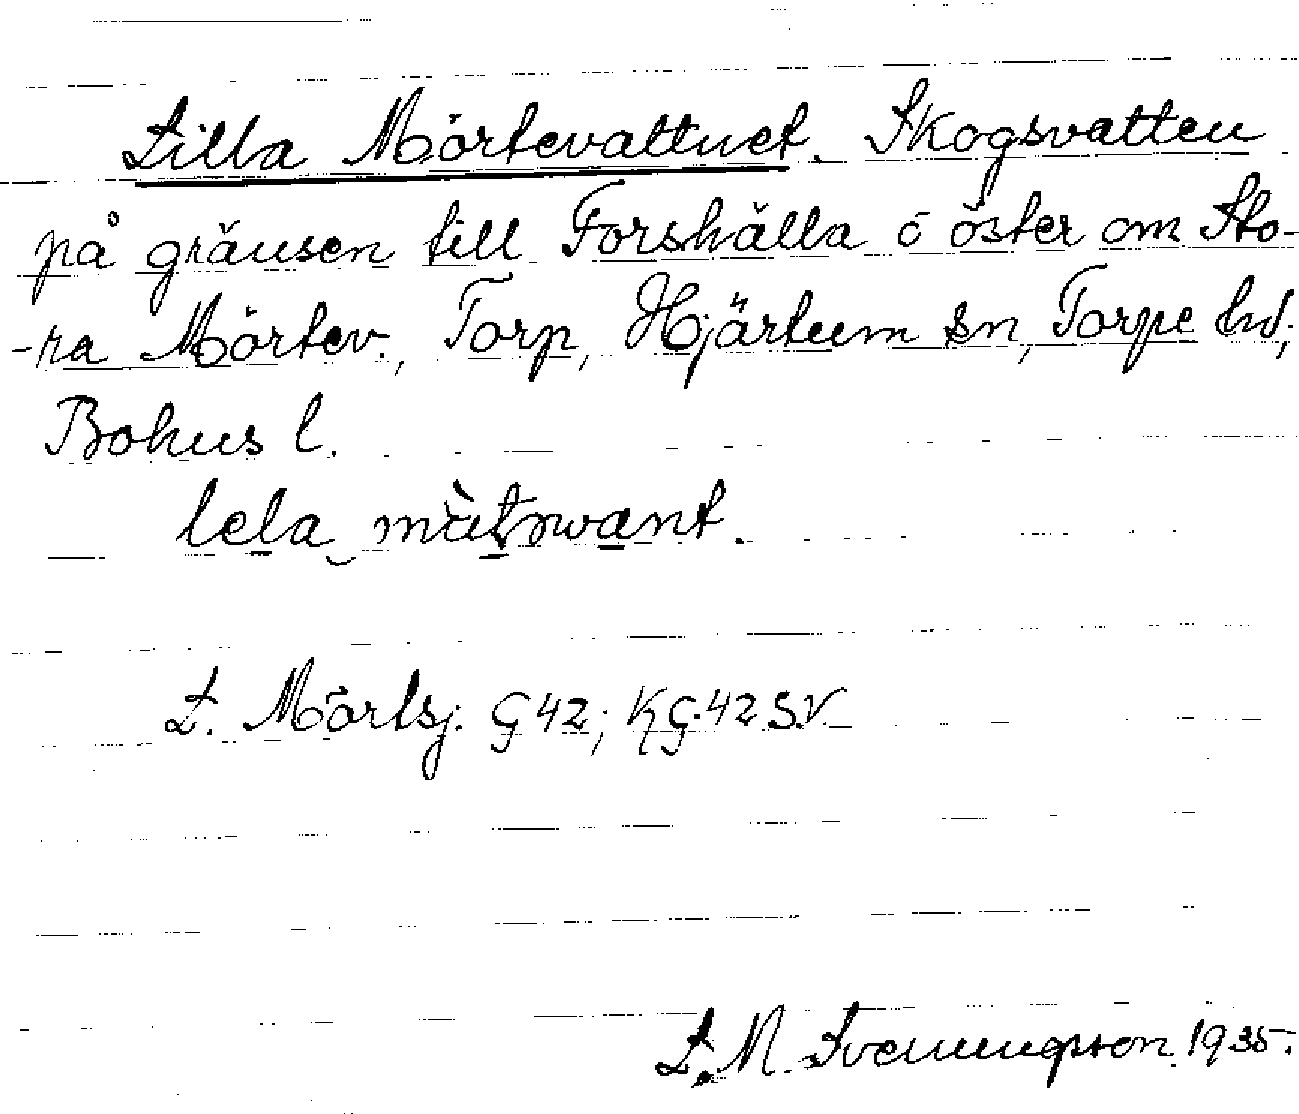 Lilla Mörtevattnet. Skogsvatten
på gränsen till Forshälla ö öster om Sto-
-ra Mörtev., Torp, Hjärtum sn, Torpe hd,
Bohus l.
lela
L. Mörtsj. G 42; KG.42 S.V
L. M. Svenungsson 1935.